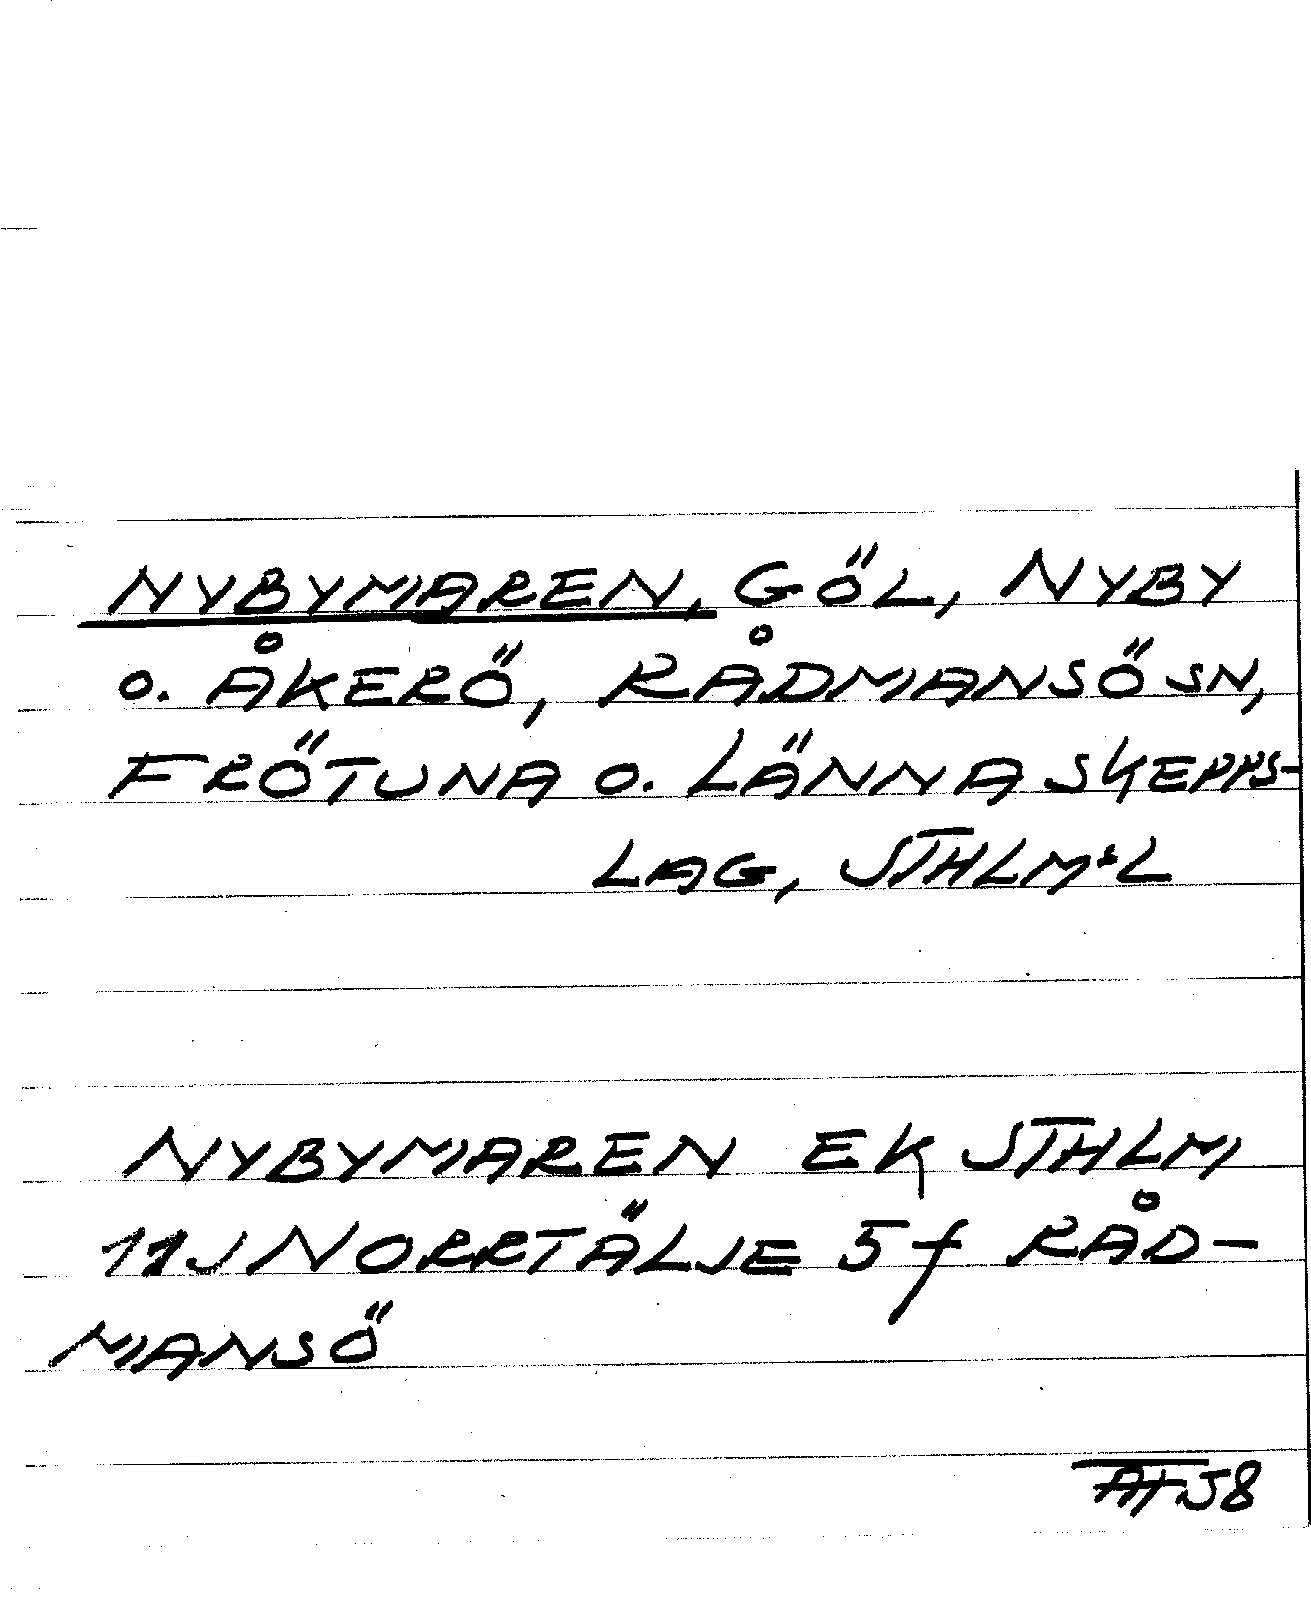 NYBYMAREN, GÖL, NYBY
O. ÅKERÖ, RÅDMANSÖ SN,
FRÖTUNA O. LÄNNA SKEPPS-
LAG, STHLMSL
NYBYMAREN EK STHLM
11J NORRTÄLJE 5f RÅD-
MANSÖ